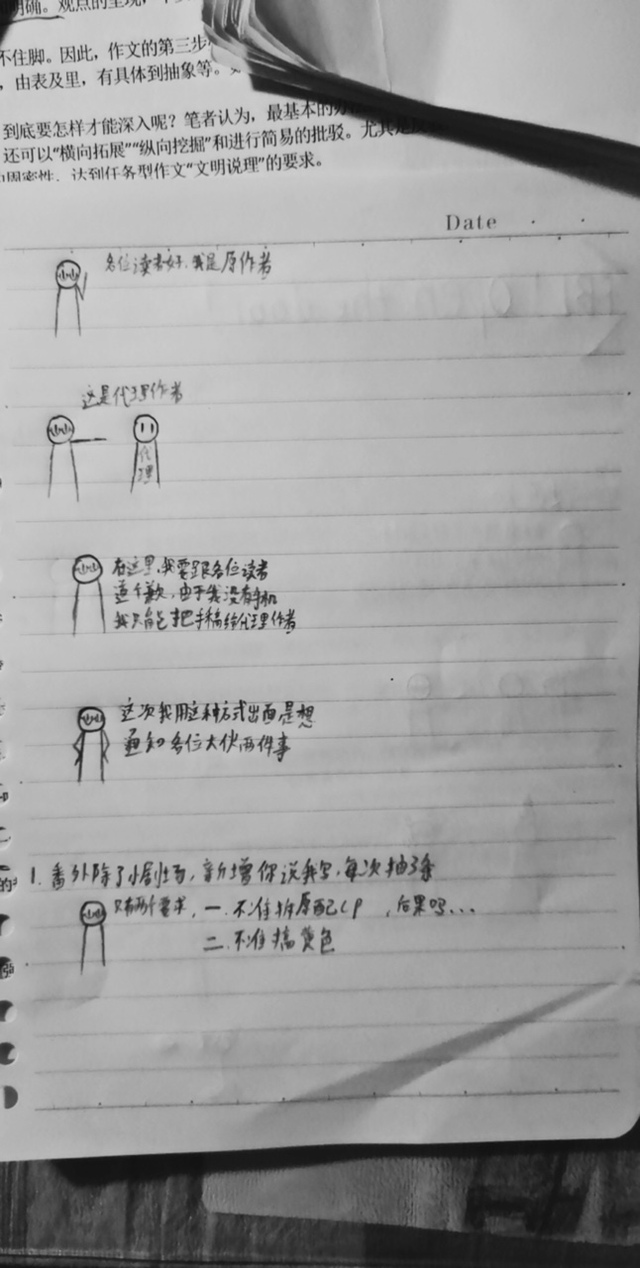 明确。观点的呈现，不
不住脚。因此，作文的第三步
，由表及里，有具体到抽象等。
到底要怎样才能深入呢？笔者认为，最基本的办
还可以“横向拓展”“纵向挖掘”和进行简易的批驳。尤其是
周密性，达到任务型作文“文明说理”的要求。
Date
各位读者好，我是原作者
这是代理作者
代
理
在这里，我要跟各位读者
道个歉，由于我没有手机
我只能把手稿给代理作者
这次我用这种方式出面是想
通知各位大伙两件事
1. 番外除了小剧场，新增你说我写，每次抽3条
只有两个要求，一.不准拆原配CP，后果吗...
二.不准搞黄色